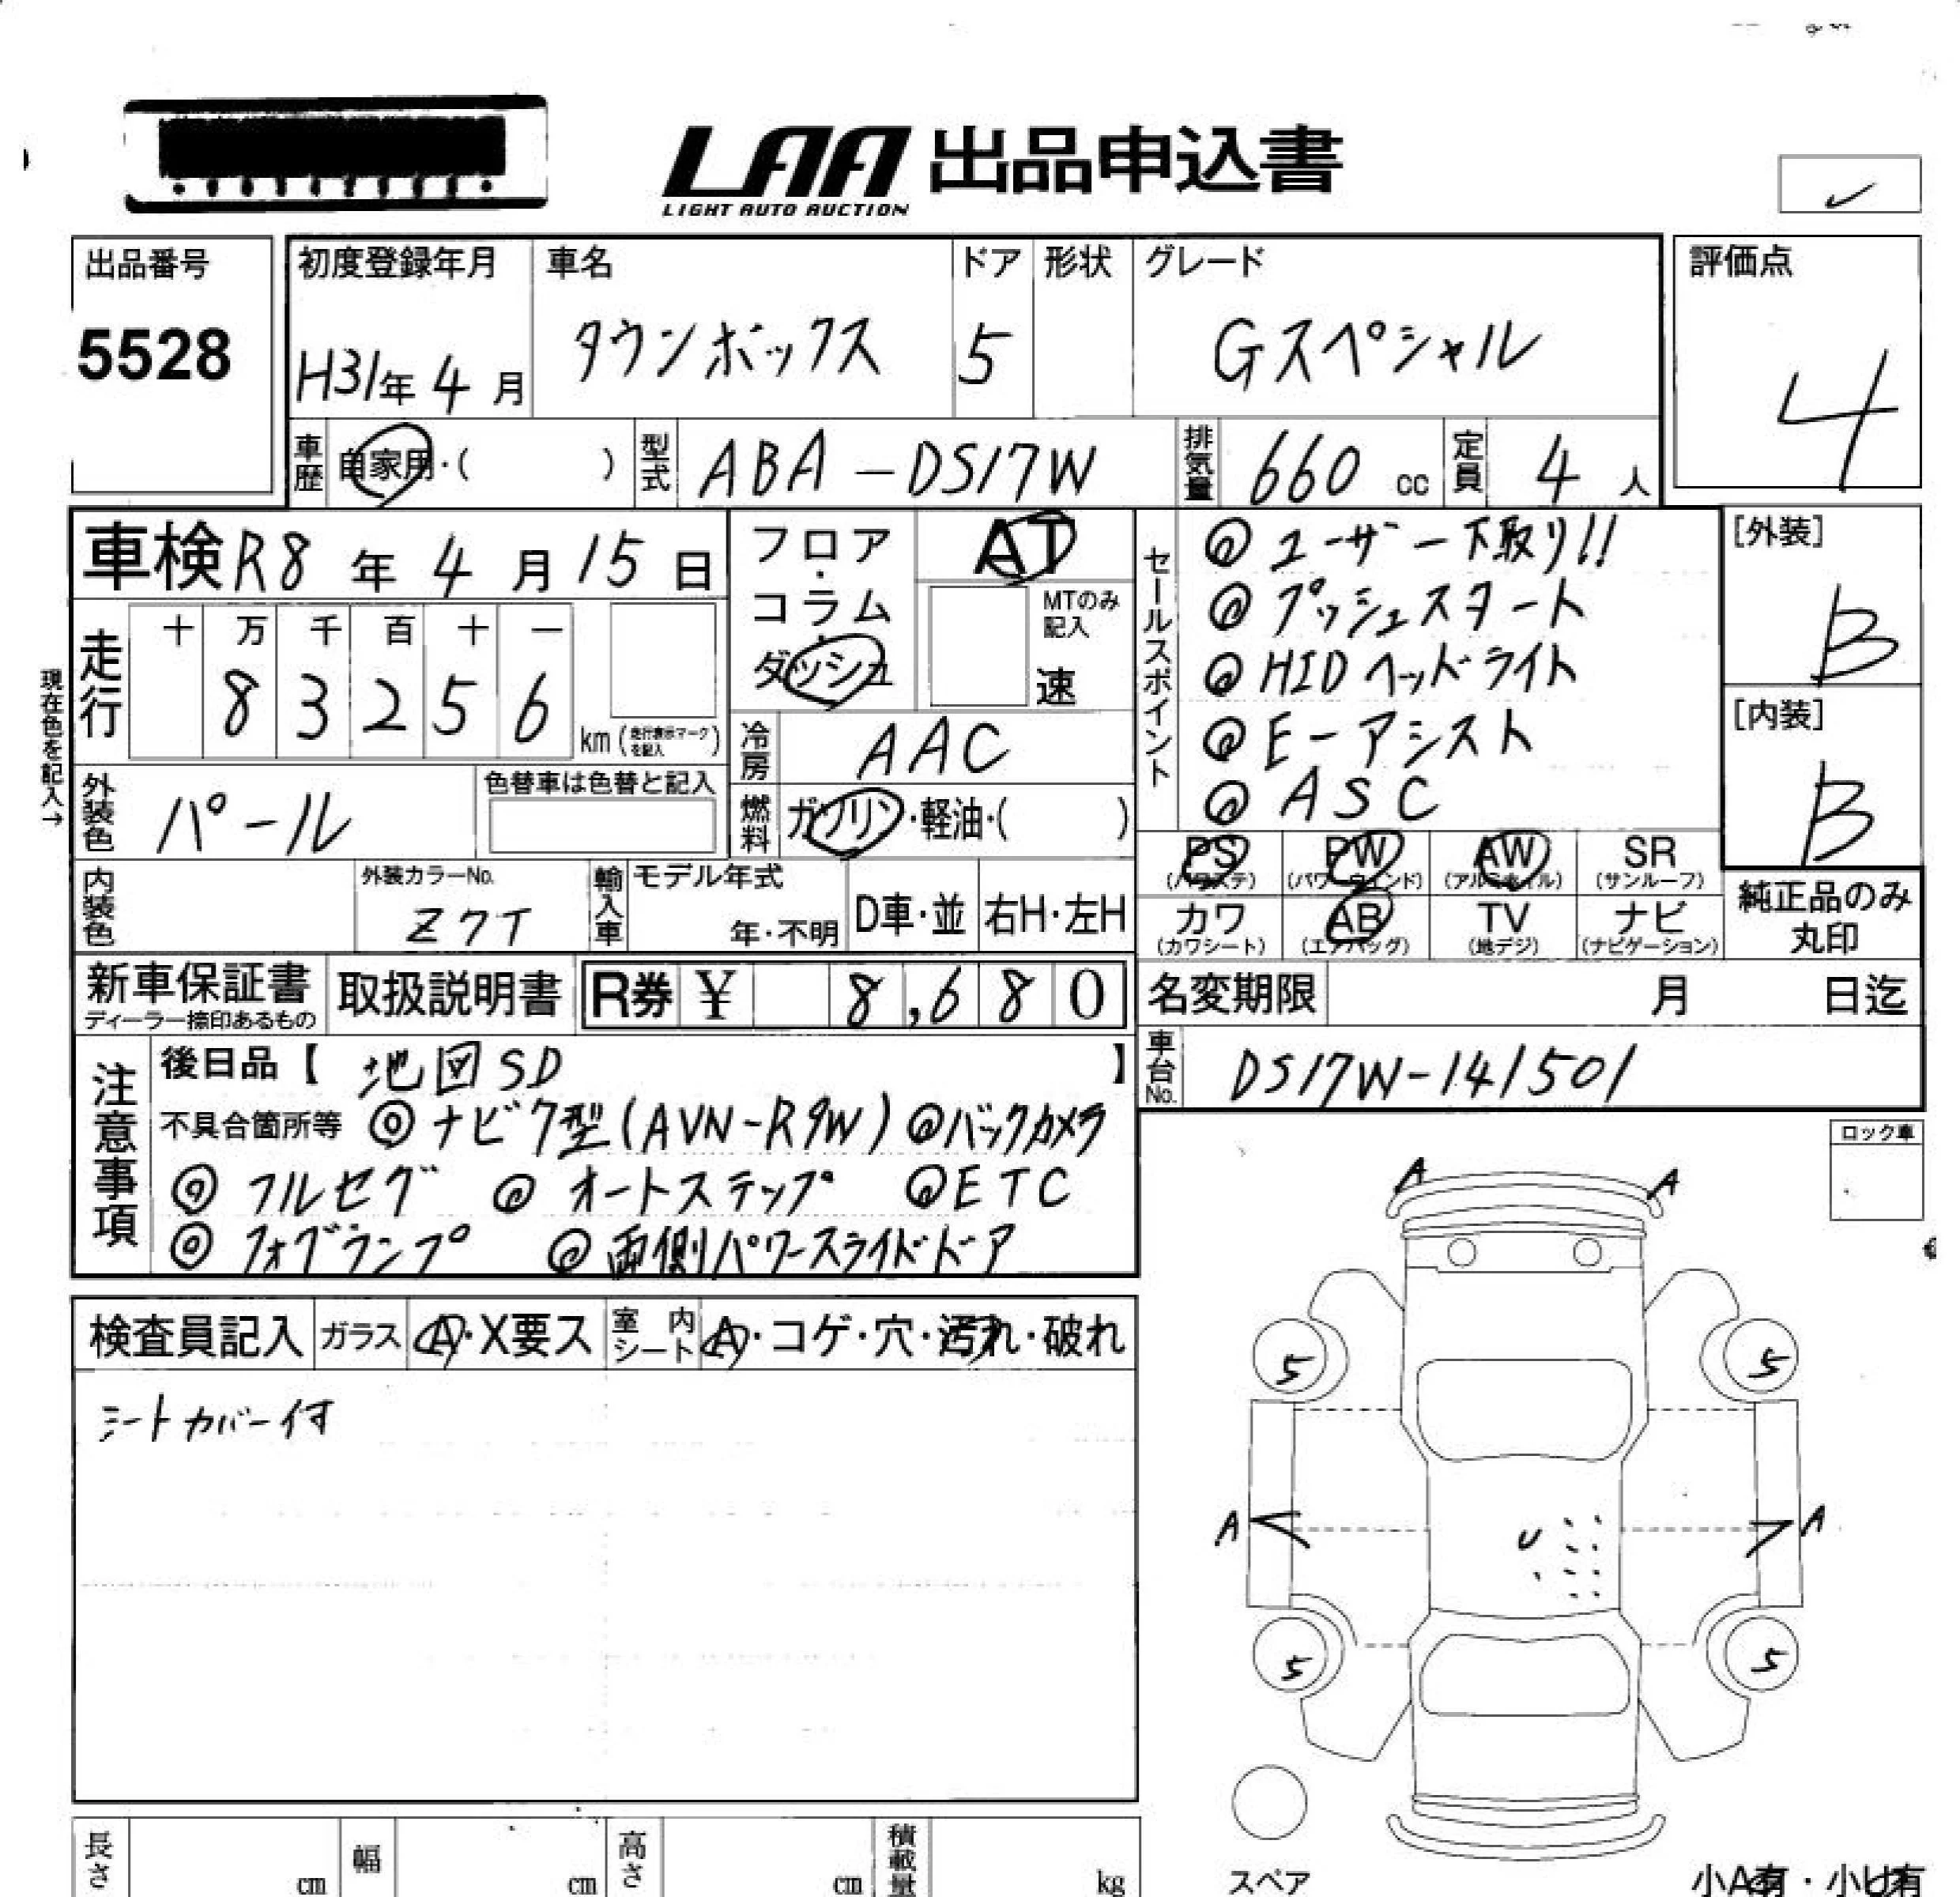 LAA 出品申込書
LIGHT AUTO AUCTION
出品番号
5528
初度登録年月
H31年 4月
車名
タウンボックス
ドア
5
形状
グレード
Gスペシャル
評価点
4
車歴 自家用・( )
型式 ABA-DS17W
排気量 660 cc
定員 4 人
車検 R8 年 4 月 15 日
フロア・コラム・ダッシュ
AT
MTのみ記入
速
セールスポイント
◎ ユーザー下取り!!
◎ プッシュスタート
◎ HIDヘッドライト
◎ E-アシスト
◎ ASC
[外装]
B
[内装]
B
現在色を記入→
走行
十 万 千 百 十 一
8 3 2 5 6
km (走行表示マークを記入)
冷房 AAC
外装色 パール
色替車は色替と記入
燃料 ガソリン・軽油・( )
PS (パワステ)
PW (パワーウィンド)
AW (アルミホイル)
SR (サンルーフ)
カワ (カワシート)
AB (エアバッグ)
TV (地デジ)
ナビ (ナビゲーション)
純正品のみ丸印
内装色
外装カラーNo.
Z7T
輸入車
モデル年式
年・不明
D車・並
右H・左H
新車保証書
ディーラー捺印あるもの
取扱説明書
R券 ¥ 8,680
名変期限 月 日迄
車台No. DS17W-141501
注意事項
後日品【 地図SD 】
不具合箇所等 ◎ ナビク型(AVN-R9W) ◎バックカメラ
◎ フルセグ ◎ オートステップ ◎ETC
◎ フォグランプ ◎ 両側パワースライドドア
ロック車
検査員記入
ガラス A・X要ス
室内シート A・コゲ・穴・汚れ・破れ
シートカバー付
A A
5 5
A A
U
5 5
スペア
小A有・小U有
長さ cm
幅 cm
高さ cm
積載量 kg